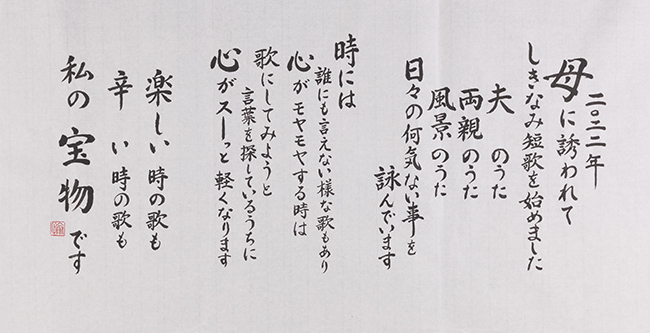 二〇二二年
母に誘われて
しきなみ短歌を始めました
夫のうた
両親のうた
風景のうた
日々の何気ない事を
詠んでいます
時には
誰にも言えない様な歌もあり
心がモヤモヤする時は
歌にしてみようと
言葉を探しているうちに
心がスーっと軽くなります
楽しい時の歌も
辛い時の歌も
私の宝物です